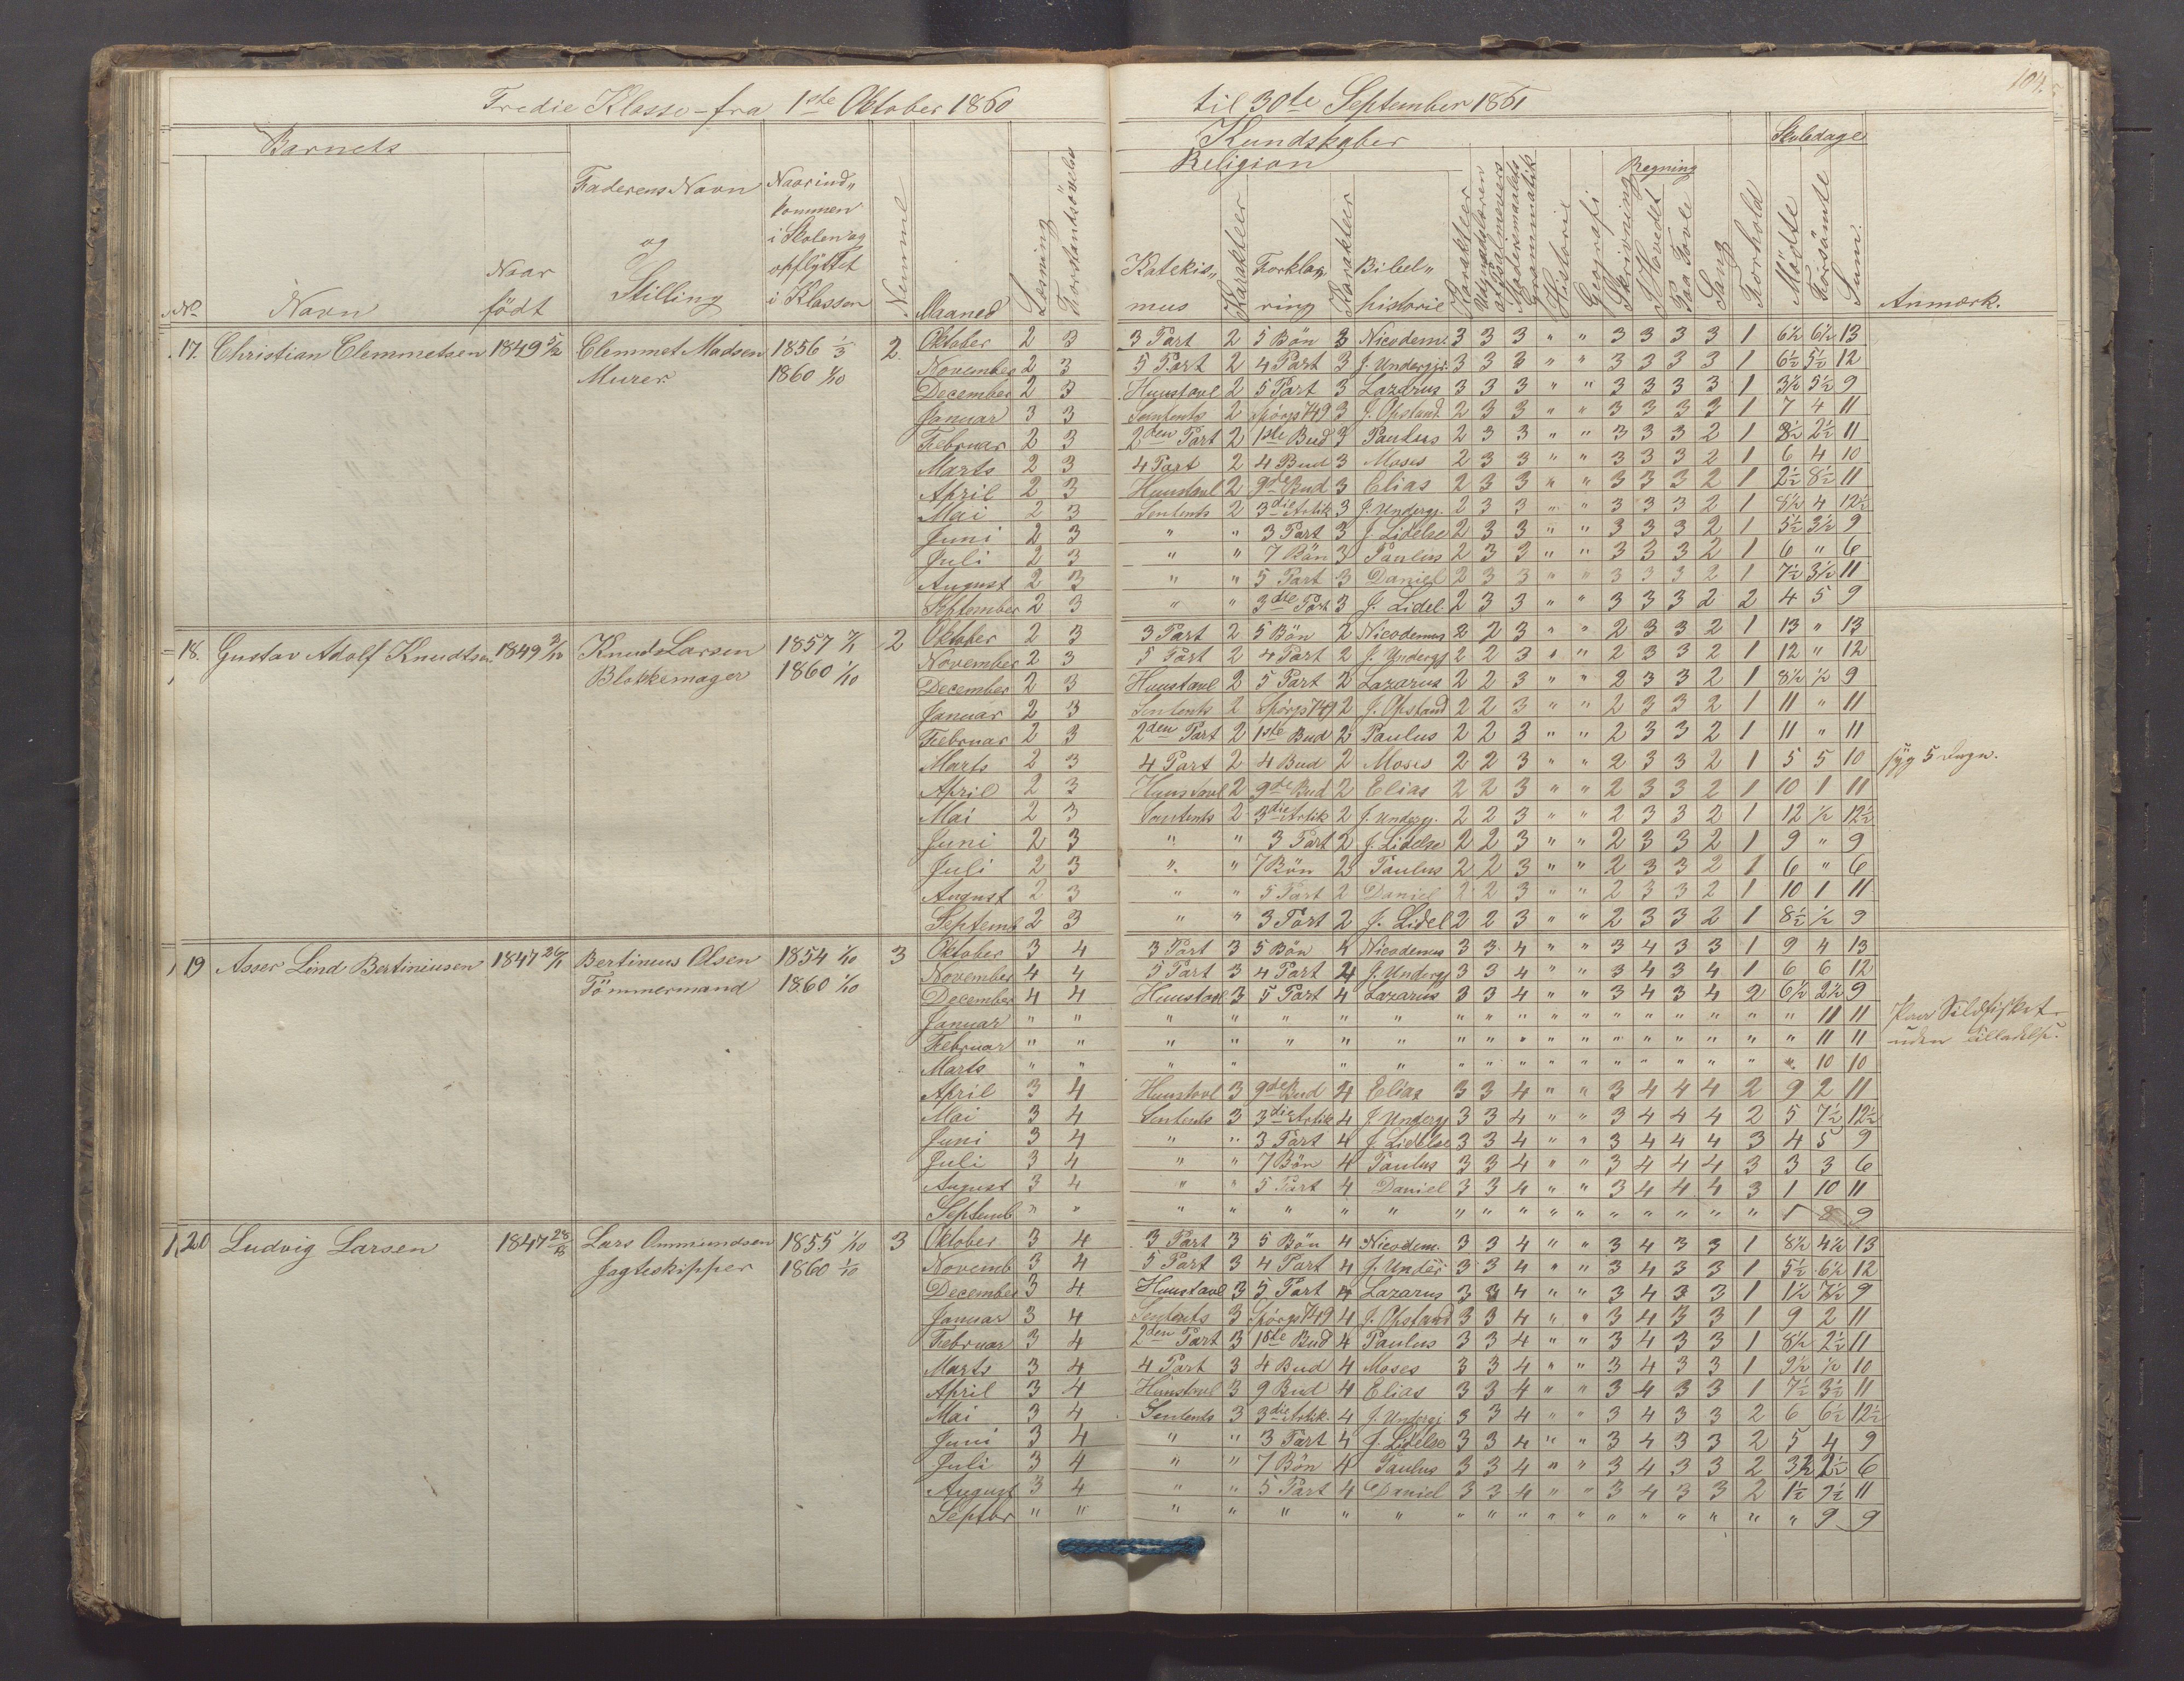 104.
Tredie Klasse - fra 1ste Oktober 1860 til 30te September 1861
Barnets
Kundskaber
Skoledage
Religion
Regning
No Navn Naar født Faderens Navn og Stilling Naar ind" kommen i Skolen og opflyttet i Klassen Numme Maaned Læsning Forstandsøvelse Katekis" mus Karakter Forklar" ring Karakter Bibel" historie Karakter Udenadslæren af Psalmevers Modersmaalets Grammatik Historie Geografi Skrivning I Hovedet Paa Tavle Sang Forhold Mødte Forsømte Sum. Anmærk.
17. Christian Clemmetsen 1849 5/12 Clemmet Madsen 1856 1/3 2 Oktober 2 3 3 Part 2 5 Bön 3 Nicodem. 3 3 3 " " 3 3 3 3 1 6½ 6½ 13
Murer. 1860 1/10 November 2 3 5 Part 2 4 Part 3 J. Undergj. 3 3 3 " " 3 3 3 3 1 6½ 5½ 12
December 2 3 Huustavl 2 5 Part 3 Lazarus 3 3 3 " " 3 3 3 3 1 3½ 5½ 9
Januar 3 3 Sentents 2 Spörgs 749 3 J. Opstand. 2 3 3 " " 3 3 3 3 1 7 4 11
Februar 2 3 2den Part 2 1ste Bud 3 Paulus 2 3 3 " " 3 3 3 2 1 8½ 2½ 11
Marts 2 3 4 Part 2 4 Bud 3 Moses 2 3 3 " " 3 3 3 2 1 6 4 10
April 2 3 Huustavl 2 9de Bud 3 Elias 2 3 3 " " 3 3 3 2 1 2½ 8½ 11
Mai 2 3 Sentents 2 3die Artik 3 J. Undergj. 2 3 3 " " 3 3 3 2 1 8½ 4 12½
Juni 2 3 " " 3 Part 3 J. Lidelse 2 3 3 " " 3 3 3 2 1 5½ 3½ 9
Juli 2 3 " " 7 Bön 3 Paulus 2 3 3 " " 3 3 3 2 1 6 " 6
August 2 3 " " 5 Part 3 Daniel 2 3 3 " " 3 3 3 2 1 7½ 3½ 11
September 2 3 " " 3die Part 3 J. Lidel. 2 3 3 " " 3 3 3 2 2 4 5 9
18. Gustav Adolf Knudtsen 1849 Knud Larsen 1857 2 Oktober 2 3 3 Part 2 5 Bön 2 Nicodemus 2 2 3 " " 2 3 3 2 1 13 " 13
Blokkemager 1860 1/10 November 2 3 5 Part 2 4 Part 2 J. Undergj 2 2 3 " " 2 3 3 2 1 12 " 12
December 2 3 Huustavl 2 5 Part 2 Lazarus 2 2 3 " " 2 3 3 2 1 8½ ½ 9
Januar 2 3 Sentents 2 Spörgs 749 2 J. Opstand 2 2 3 " " 2 3 3 2 1 11 " 11
Februar 2 3 2den Part 2 1ste Bud 2 Paulus 2 2 3 " " 2 3 3 2 1 11 " 11
Marts 2 3 4 Part 2 4 Bud 2 Moses 2 2 3 " " 2 3 3 2 1 5 5 10 syg 5 Dage.
April 2 3 Huustavl 2 9de Bud 2 Elias 2 2 3 " " 2 3 3 2 1 10 1 11
Mai 2 3 Sentents 2 3die Artik 2 J. Undergj. 2 2 3 " " 2 3 3 2 1 12 ½ 12½
Juni 2 3 " " 3 Part 2 J. Lidelse 2 2 3 " " 2 3 3 2 1 9 " 9
Juli 2 3 " " 7 Bön 2 Paulus 2 2 3 " " 2 3 3 2 1 6 " 6
August 2 3 " " 5 Part 2 Daniel 2 2 3 " " 2 3 3 2 1 10 1 11
Septemb 2 3 " " 3 Part 2 J. Lidel 2 2 3 " " 2 3 3 2 1 8½ ½ 9
19 Asser Lind Bertiniusen 1847 Bertinius Olsen 1854 1/10 3 Oktober 3 4 3 Part 3 5 Bön 4 Nicodemus 3 3 4 " " 3 4 3 3 1 9 4 13
Tömmermand 1860 1/10 November 4 4 5 Part 3 4 Part 4 J. Undergj 3 3 4 " " 3 4 3 4 1 6 6 12
December 4 4 Huustavl 3 5 Part 4 Lazarus 3 3 4 " " 3 4 3 4 2 6½ 2½ 9
Januar " " " " " " " " " " " " " " " " " " " 11 11 Paa Sildfisket
Februar " " " " " " " " " " " " " " " " " " " 11 11 uden Tilladelse.
Marts " " " " " " " " " " " " " " " " " " " 10 10
April 3 4 Huustavl 3 9de Bud 4 Elias 3 3 4 " " 3 4 4 4 2 9 2 11
Mai 3 4 Sentents 3 3die Artik 4 J Undergj 3 3 4 " " 3 4 4 4 2 5 7½ 12½
Juni 3 4 " " 3 Part 4 J. Lidelse 3 3 4 " " 3 4 4 4 3 4 5 9
Juli 3 4 " " 7 Bön 4 Paulus 3 3 4 " " 3 4 4 4 3 3 3 6
August 3 4 " " 5 Part 4 Daniel 3 3 4 " " 3 4 4 4 3 1 10 11
Septemb " " " " " " " " " " " " " " " " " " 1 8 9
20 Ludvig Larsen 1847 Lars Ommundsen 1855 1/10 3 Oktober 3 4 3 Part 3 5 Bön 4 Nicodem. 3 3 4 " " 3 4 3 3 1 8½ 4½ 13
Jagteskipper 1860 1/10 Novemb 3 4 5 Part 3 4 Part 4 J. Under 3 3 4 " " 3 4 3 3 1 5½ 6½ 12
December 3 4 Huustavl 3 5 Part 4 Lazarus 3 3 4 " " 3 4 3 3 1 1½ 7½ 9
Januar 3 4 Sentents 3 Spörgs 749 4 J. Opstand 3 3 4 " " 3 4 3 3 1 9 2 11
Februar 3 4 2den Part 3 1ste Bud 4 Paulus 3 3 4 " " 3 4 3 3 1 8½ 2½ 11
Marts 3 4 4 Part 3 4 Bud 4 Moses 3 3 4 " " 3 4 3 3 1 9½ ½ 10
April 3 4 Huustavl 3 9 Bud 4 Elias 3 3 4 " " 3 4 3 3 1 7½ 3½ 11
Mai 3 4 Sentents 3 3die Artik. 4 J. Undergj 3 3 4 " " 3 4 3 3 2 6 6½ 12½
Juni 3 4 " " 3 Part 4 J. Lidelse 3 3 4 " " 3 4 3 3 2 5 4 9
Juli 3 4 " " 7 Bön 4 Paulus 3 3 4 " " 3 4 3 3 2 3½ 2½ 6
August 3 4 " " 5 Part 4 Daniel 3 3 4 " " 3 4 3 3 2 1½ 9½ 11
Septbr " " " " " " " " " " " " " " " " " " " 9 9